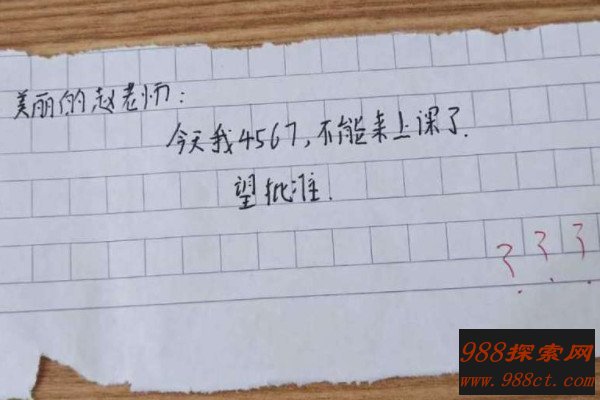 美丽的赵老师:
今天我4567,不能来上课了.
望批准.
???
988探索网
www.988ct.com